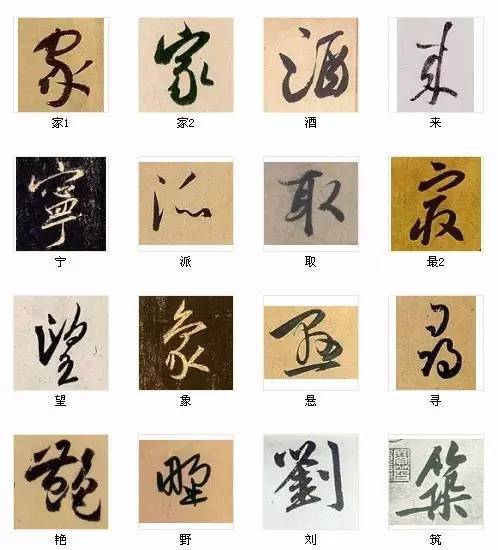 家 家 酒 来
家1 家2 酒 来
寧 派 取 㝡
宁 派 取 最2
望 象 懸 尋
望 象 悬 寻
艶 野 劉 築
艳 野 刘 筑